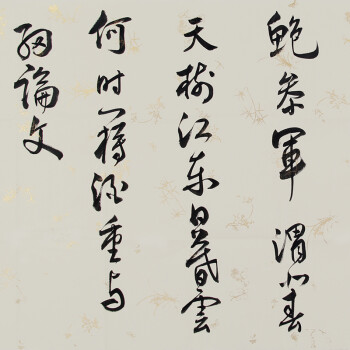 鲍参軍渭北春
天树江东日暮雲
何时一樽酒重与
细論文